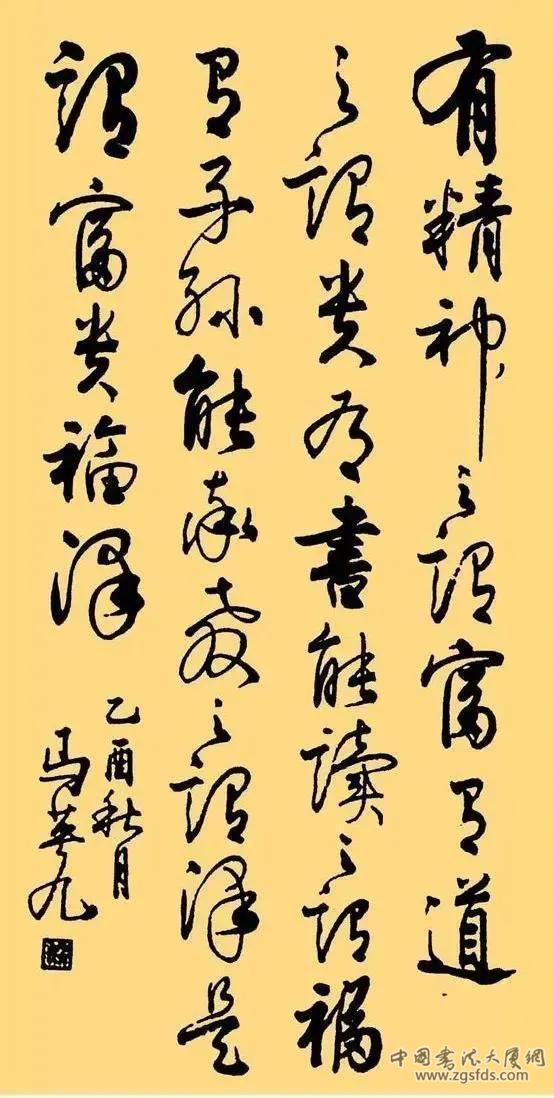 有精神之谓富有道
之谓贵有書能讀之谓福
有子孙能承教之谓泽是
谓富贵福泽
乙酉秋月
馬英九
中国書法大厦網
www.zgsfds.com